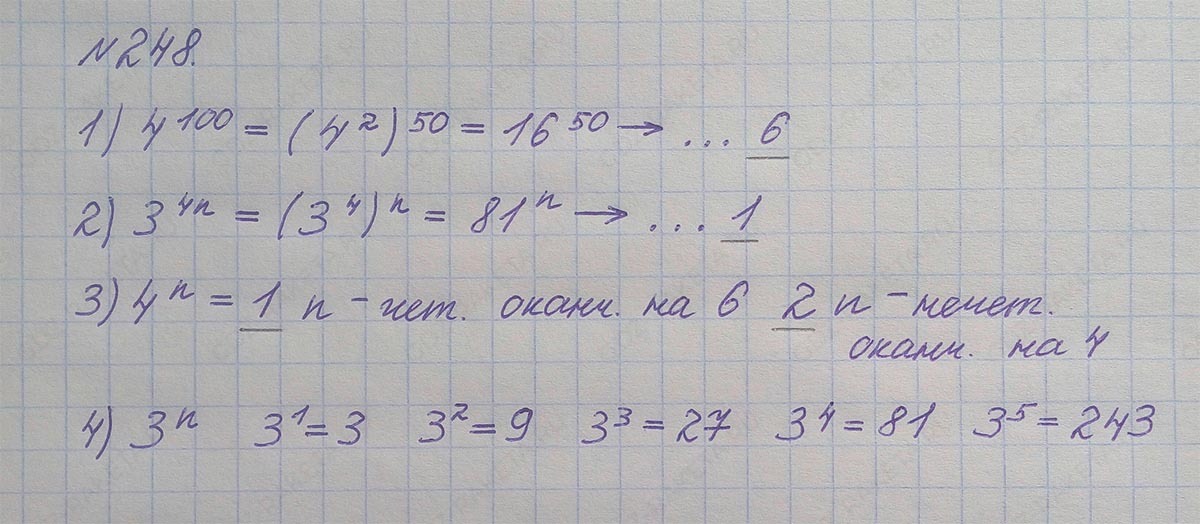 №248.
1) 4^100 = (4^2)^50 = 16^50 → ...6
2) 3^4n = (3^4)^n = 81^n → ...1
3) 4^n = 1 n - чет. оканч. на 6 2 n - нечет.
оканч. на 4
4) 3^n 3^1=3 3^2=9 3^3=27 3^4=81 3^5=243